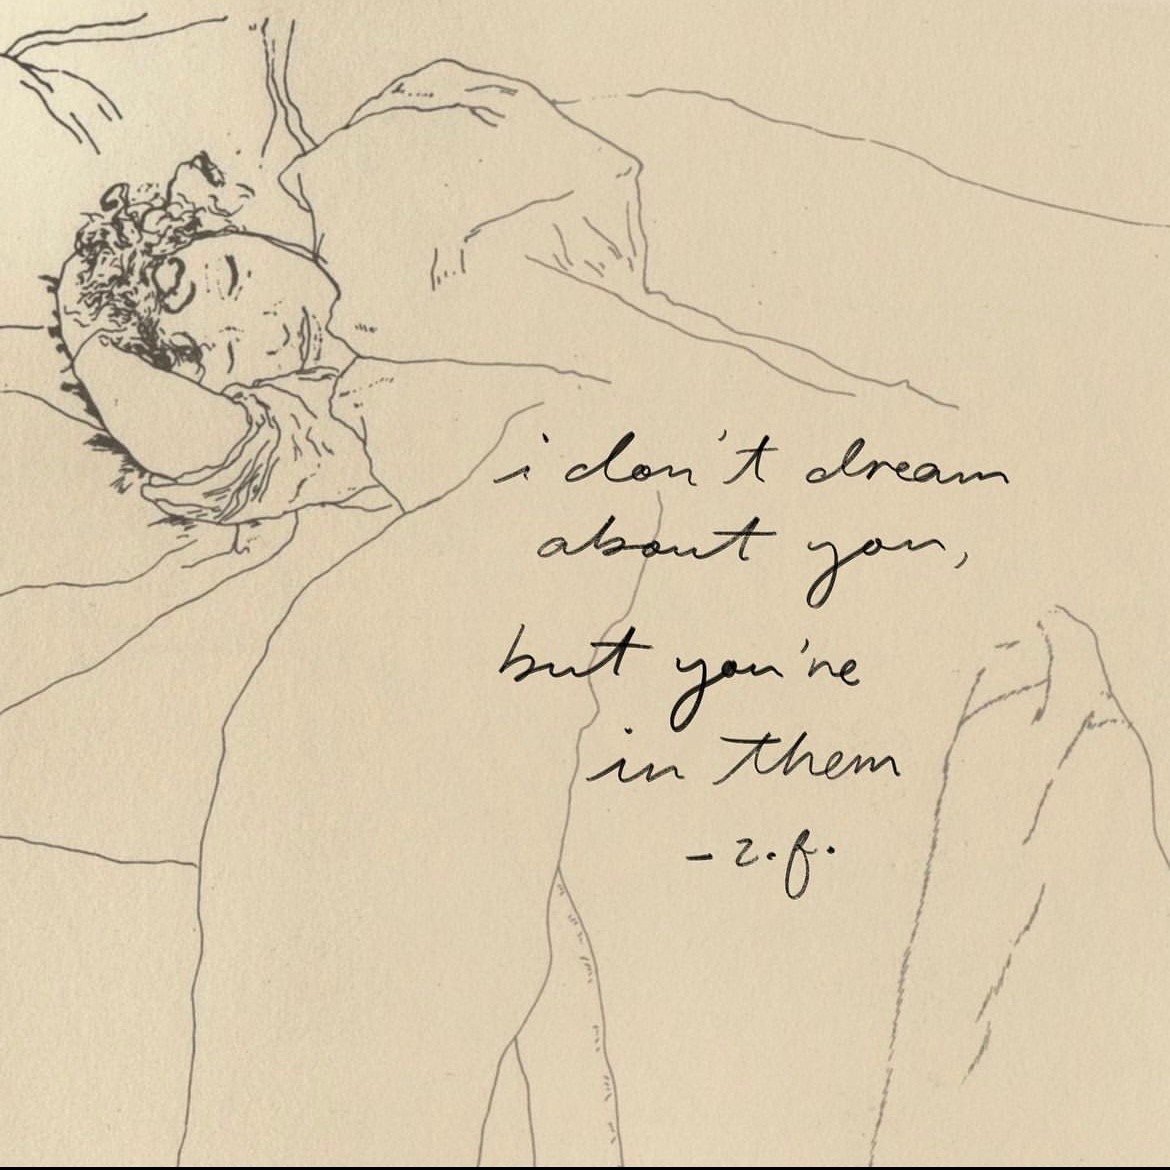 i don't dream
about you,
but you're
in them
- z.f.